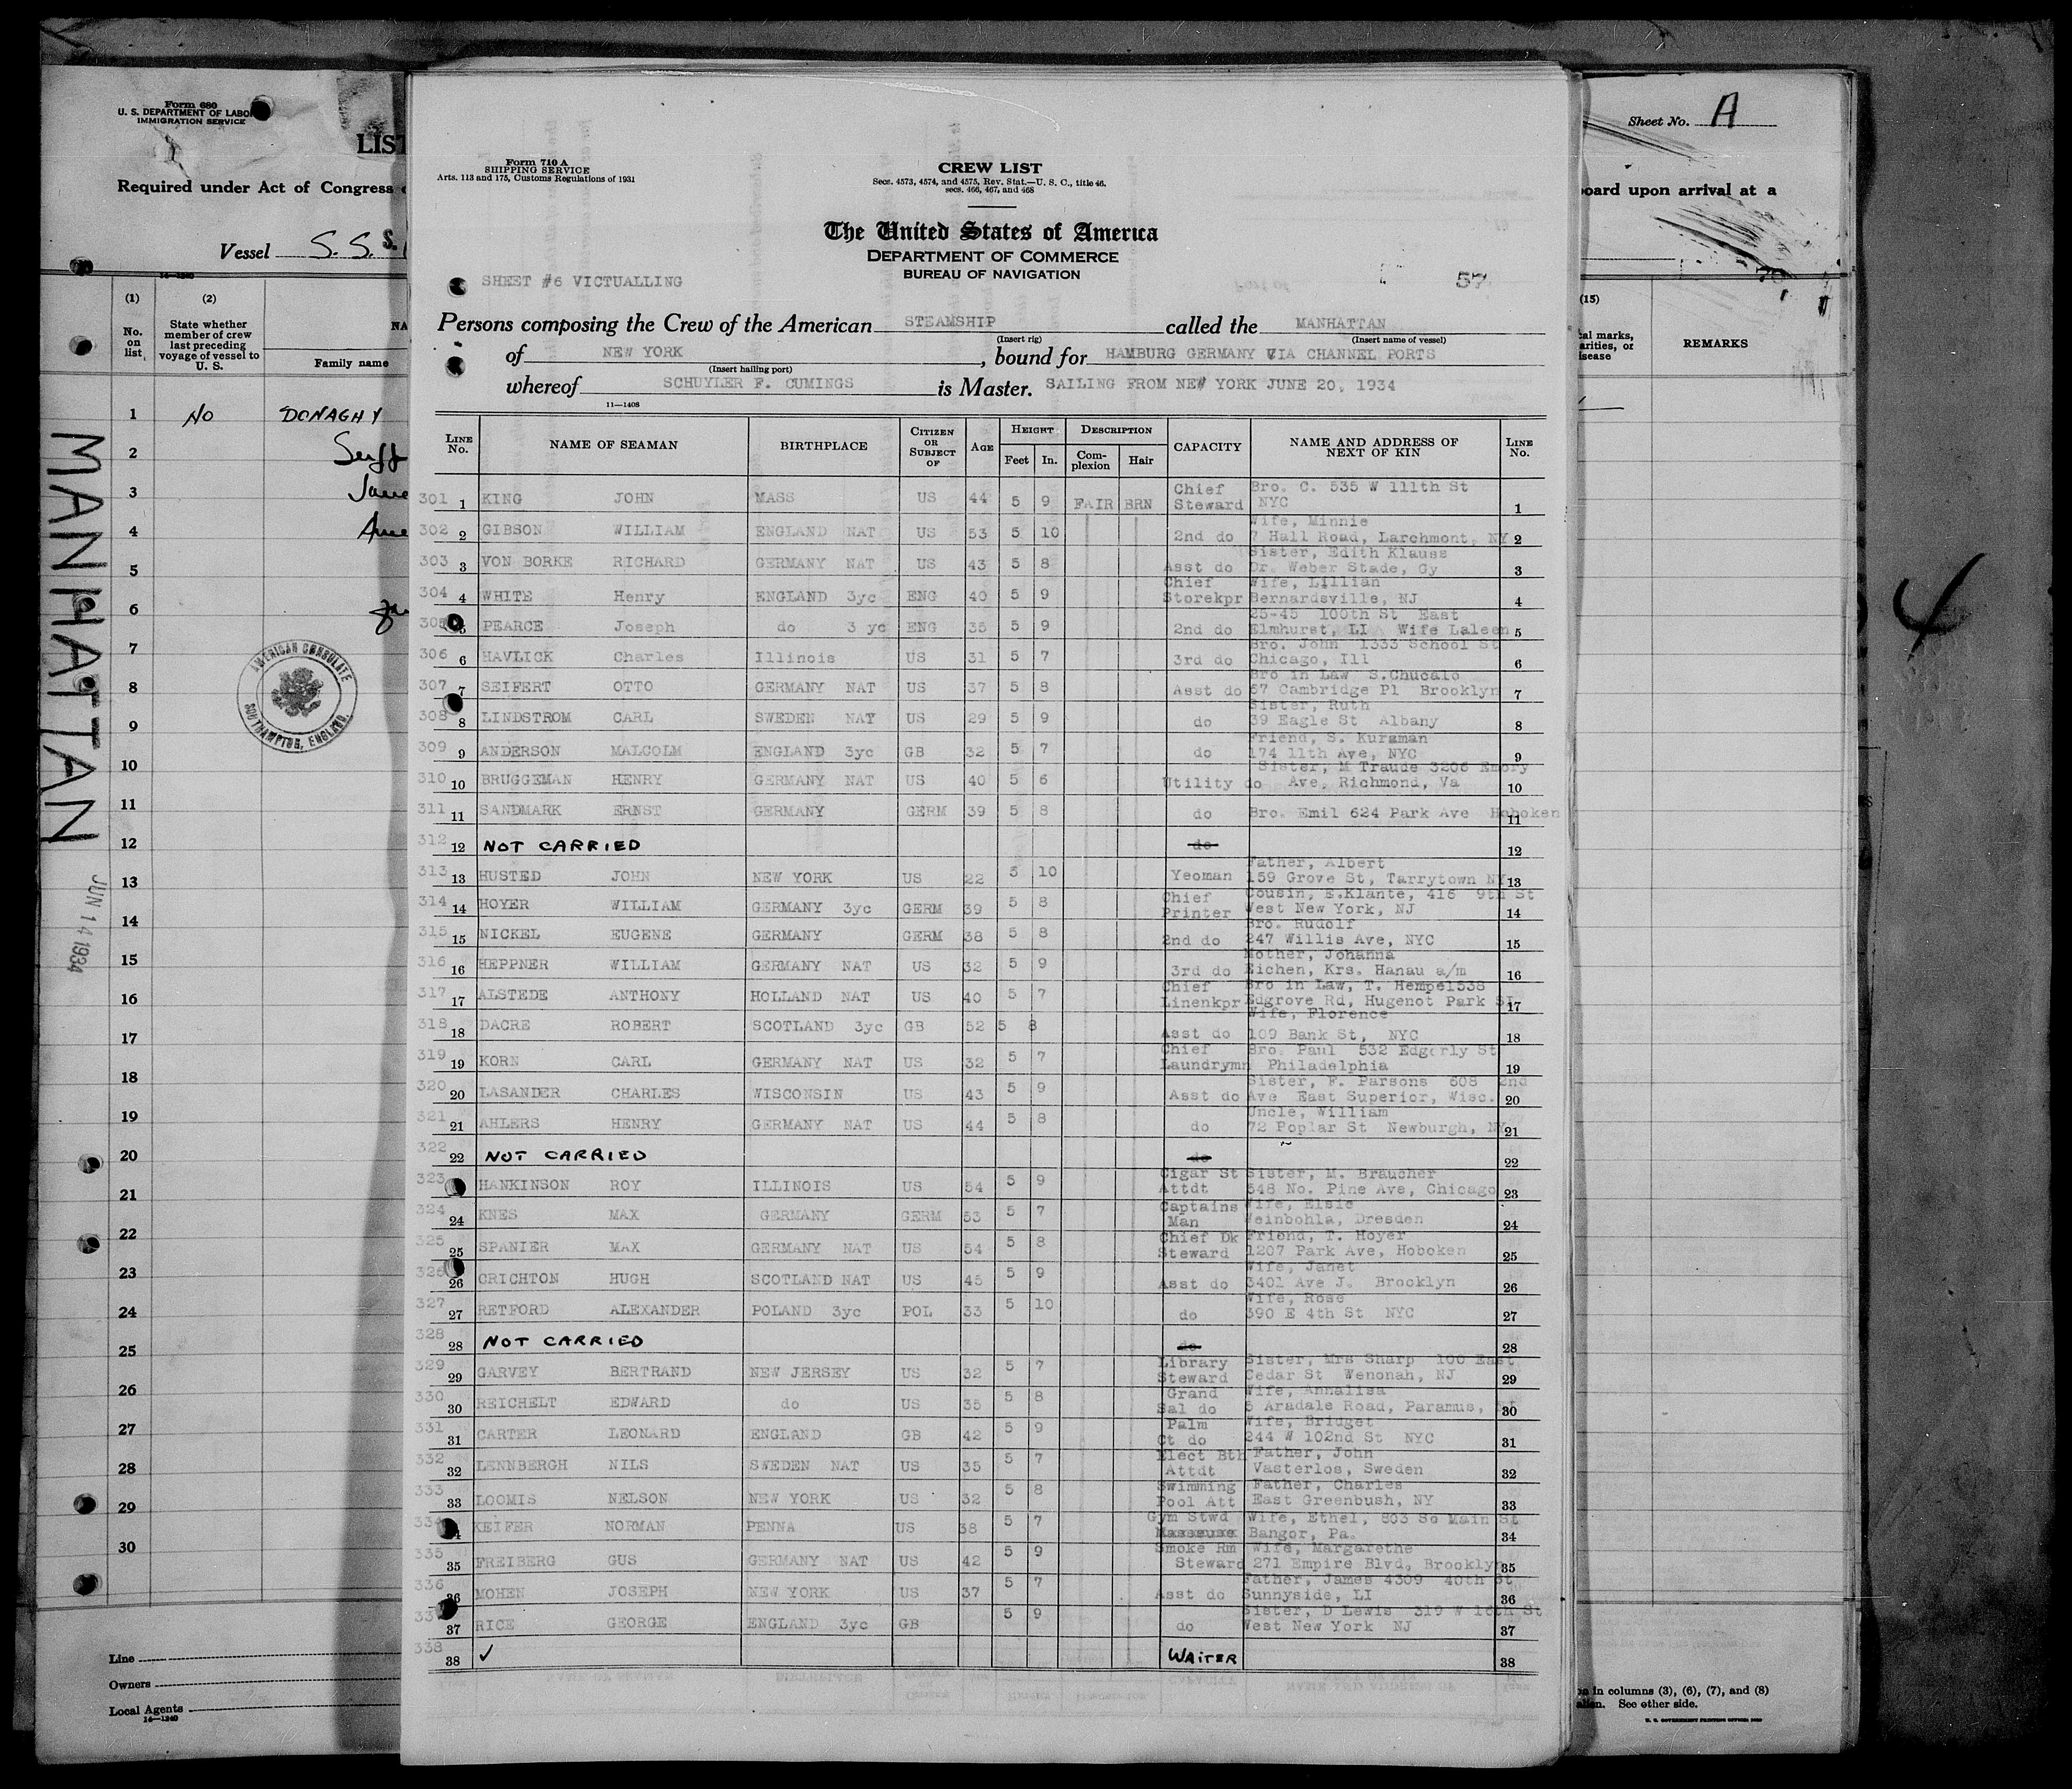 Form 680
U. S. DEPARTMENT OF LABOR
IMMIGRATION SERVICE
LIST
Required under Act of Congress
Vessel S.S.
(1) (2)
No. on list
State whether member of crew last preceding voyage of vessel to U. S.
Family name
1 No DONAGHY
2
3
4
5
6
7
8
9
10
11
12
13
14
15
16
17
18
19
20
21
22
23
24
25
26
27
28
29
30
MANHATTAN
JUN 14 1934
AMERICAN CONSULATE
SOUTHAMPTON, ENGLAND.
Line
Owners
Local Agents
14—1240
Form 710 A
SHIPPING SERVICE
Arts. 113 and 175, Customs Regulations of 1931
CREW LIST
Secs. 4573, 4574, and 4575, Rev. Stat.—U. S. C., title 46, secs. 466, 467, and 468
The United States of America
DEPARTMENT OF COMMERCE
BUREAU OF NAVIGATION
SHEET #6 VICTUALLING
57
Persons composing the Crew of the American STEAMSHIP called the MANHATTAN
(Insert rig) (Insert name of vessel)
of NEW YORK, bound for HAMBURG GERMANY VIA CHANNEL PORTS
(Insert hailing port)
whereof SCHUYLER F. CUMINGS is Master. SAILING FROM NEW YORK JUNE 20, 1934
11—1408
LINE No. NAME OF SEAMAN BIRTHPLACE CITIZEN OR SUBJECT OF AGE HEIGHT Feet In. DESCRIPTION Complexion Hair CAPACITY NAME AND ADDRESS OF NEXT OF KIN LINE No.
301 1 KING JOHN MASS US 44 5 9 FAIR BRN Chief Steward Bro. C. 535 W 111th St NYC 1
302 2 GIBSON WILLIAM ENGLAND NAT US 53 5 10 2nd do Wife, Minnie 7 Hall Road, Larchmont, NY 2
303 3 VON BORKE RICHARD GERMANY NAT US 43 5 8 Asst do Sister, Edith Klauss Dr. Weber Stade, Gy 3
304 4 WHITE Henry ENGLAND 3yc ENG 40 5 9 Chief Storekpr Wife, Lillian Bernardsville, NJ 4
305 5 PEARCE Joseph do 3 yc ENG 35 5 9 2nd do 25-45 100th St East Elmhurst, LI Wife Laleen 5
306 6 HAVLICK Charles Illinois US 31 5 7 3rd do Bro. John 1333 School St Chicago, Ill 6
307 7 SEIFERT OTTO GERMANY NAT US 37 5 8 Asst do Bro in Law S.Chucalo 67 Cambridge Pl Brooklyn 7
308 8 LINDSTROM CARL SWEDEN NAT US 29 5 9 do Sister, Ruth 39 Eagle St Albany 8
309 9 ANDERSON MALCOLM ENGLAND 3yc GB 32 5 7 do Friend, S. Kurzman 174 11th Ave, NYC 9
310 10 BRUGGEMAN HENRY GERMANY NAT US 40 5 6 Utility do Sister, M Traude 3206 Emory Ave, Richmond, Va 10
311 11 SANDMARK ERNST GERMANY GERM 39 5 8 do Bro. Emil 624 Park Ave Hoboken 11
312 12 NOT CARRIED do 12
313 13 HUSTED JOHN NEW YORK US 22 5 10 Yeoman Father, Albert 159 Grove St, Tarrytown NY 13
314 14 HOYER WILLIAM GERMANY 3yc GERM 39 5 8 Chief Printer Cousin, E.Klante, 416 9th St West New York, NJ 14
315 15 NICKEL EUGENE GERMANY GERM 38 5 8 2nd do Bro. Rudolf 247 Willis Ave, NYC 15
316 16 HEPPNER WILLIAM GERMANY NAT US 32 5 9 3rd do Mother, Johanna Eichen, Krs. Hanau a/m 16
317 17 ALSTEDE ANTHONY HOLLAND NAT US 40 5 7 Chief Linenkpr Bro in Law, T. Hempel538 Edgrove Rd, Hugenot Park SI 17
318 18 DACRE ROBERT SCOTLAND 3yc GB 52 5 8 Asst do Wife, Florence 109 Bank St, NYC 18
319 19 KORN CARL GERMANY NAT US 32 5 7 Chief Laundrymn Bro. Paul 532 Edgerly St Philadelphia 19
320 20 LASANDER CHARLES WISCONSIN US 43 5 9 Asst do Sister, F. Parsons 608 2nd Ave East Superior, Wisc. 20
321 21 AHLERS HENRY GERMANY NAT US 44 5 8 do Uncle, William 72 Poplar St Newburgh, NY 21
322 22 NOT CARRIED do 22
323 HANKINSON ROY ILLINOIS US 54 5 9 Cigar St Attdt Sister, M. Braucher 548 No. Pine Ave, Chicago 23
324 24 KNES MAX GERMANY GERM 53 5 7 Captains Man Wife, Elsie Weinbohla, Dresden 24
325 25 SPANIER MAX GERMANY NAT US 54 5 8 Chief Dk Steward Friend, T. Hoyer 1207 Park Ave, Hoboken 25
326 26 CRICHTON HUGH SCOTLAND NAT US 45 5 9 Asst do Wife, Janet 3401 Ave J. Brooklyn 26
327 27 RETFORD ALEXANDER POLAND 3yc POL 33 5 10 do Wife, Rose 390 E 4th St NYC 27
328 28 NOT CARRIED do 28
329 29 GARVEY BERTRAND NEW JERSEY US 32 5 7 Library Steward Sister, Mrs Sharp 100 East Cedar St Wenonah, NJ 29
330 30 REICHELT EDWARD do US 35 5 8 Grand Sal do Wife, Annalisa 5 Aradale Road, Paramus, 30
331 31 CARTER LEONARD ENGLAND GB 42 5 9 Palm Ct do Wife, Bridget 244 W 102nd St NYC 31
332 32 LENNBERGH NILS SWEDEN NAT US 35 5 7 Elect Bth Attdt Father, John Vasterlos, Sweden 32
333 33 LOOMIS NELSON NEW YORK US 32 5 8 Swimming Pool Att Father, Charles East Greenbush, NY 33
334 KEIFER NORMAN PENNA US 38 5 7 Gym Stwd Wife, Ethel, 803 So Main St Bangor, Pa. 34
335 35 FREIBERG GUS GERMANY NAT US 42 5 9 Smoke Rm Steward Wife, Margarethe 271 Empire Blvd, Brooklyn 35
336 36 MOHEN JOSEPH NEW YORK US 37 5 7 Asst do Father, James 4309 40th St Sunnyside, LI 36
337 37 RICE GEORGE ENGLAND 3yc GB 5 9 do Sister, D Lewis 319 W 16th St West New York NJ 37
338 38 ✓ WAITER 38
Sheet No. A
board upon arrival at a
(15)
REMARKS
4
in columns (3), (6), (7), and (8)
See other side.
U. S. GOVERNMENT PRINTING OFFICE